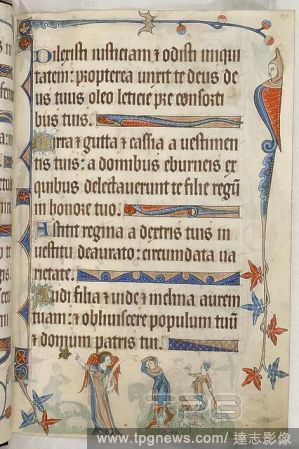 Dilexisti iusticiam & odisti iniqui
tatem: propterea unxit te deus de
us tuus oleo leticie pre consorti
bus tuis.
Mirra & gutta & cassia a uestimen
tis tuis: a domibus eburneis ex
quibus delectauerunt te filie regū
in honore tuo.
Astitit regina a dextris tuis in
uestitu deaurato: circumdata ua
rietate.
Audi filia & uide & inclina aurem
tuam: & obliuiscere populum tuū
& domum patris tui.
TPG
www.tpgnews.com / 達志影像